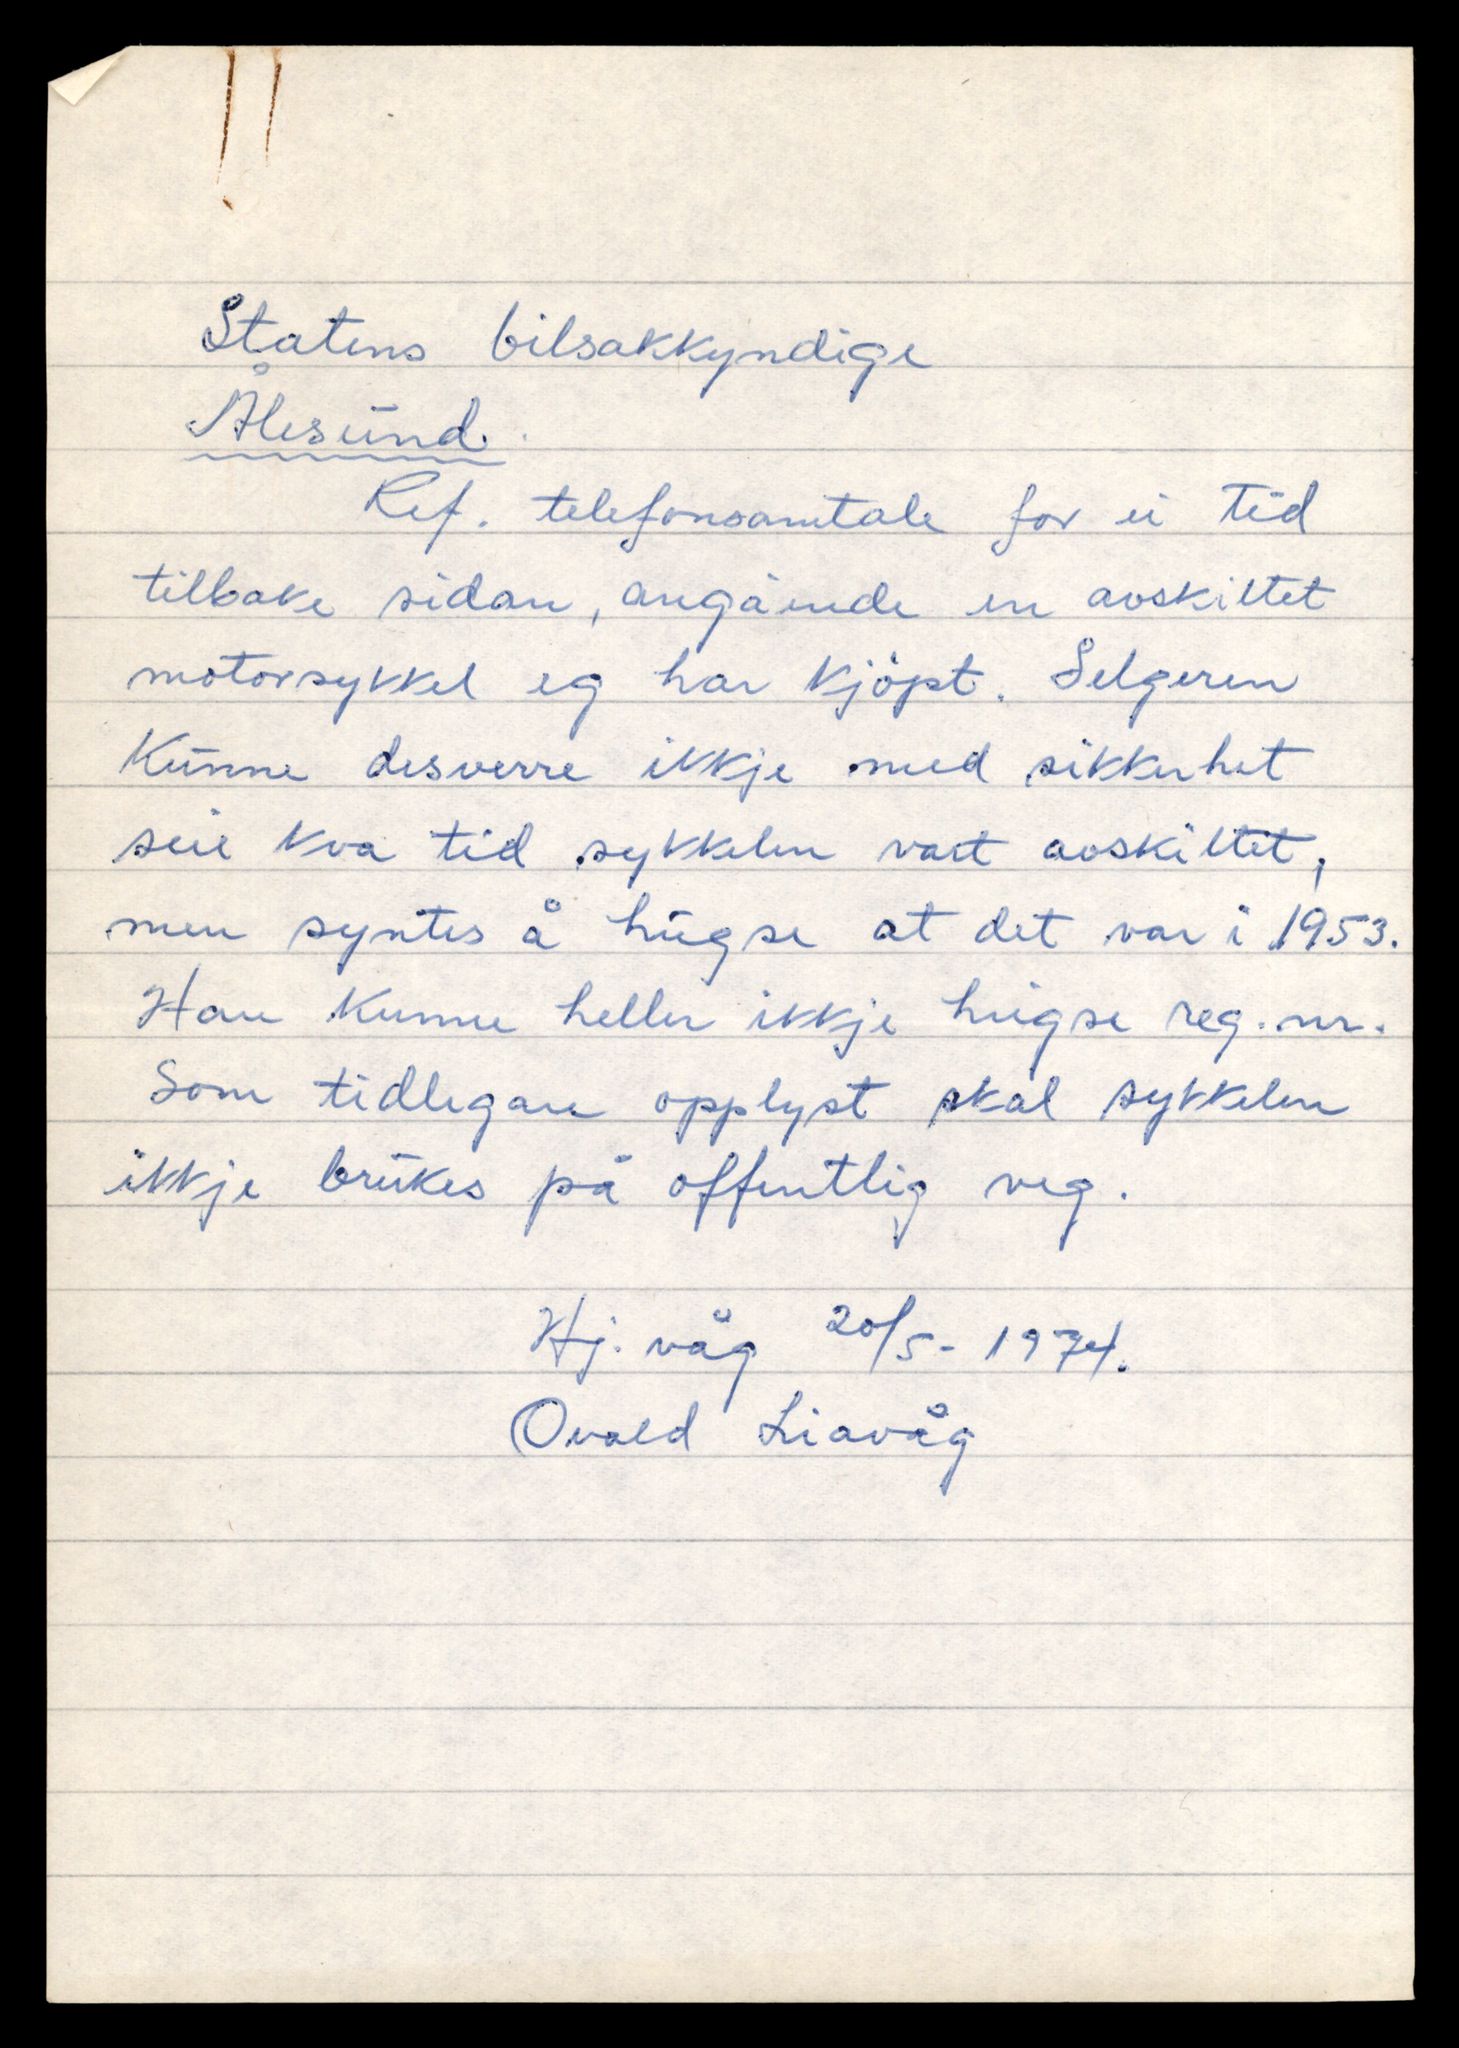 Statens bilsakkyndige
Ålesund.
Ref. telefonsamtale for ei tid
tilbake sidan, angående en avskiltet
motorsykkel eg har kjöpt. Selgeren
Kunne desverre ikkje med sikkerhet
seie kva tid sykkelen vart avskiltet,
men syntes å hugse at det var i 1953.
Han kunne heller ikkje hugse reg.nr.
Som tidlegare opplyst skal sykkelen
ikkje brukes på offentlig veg.
Hj. våg 20/5- 1974.
Ovald Liavåg